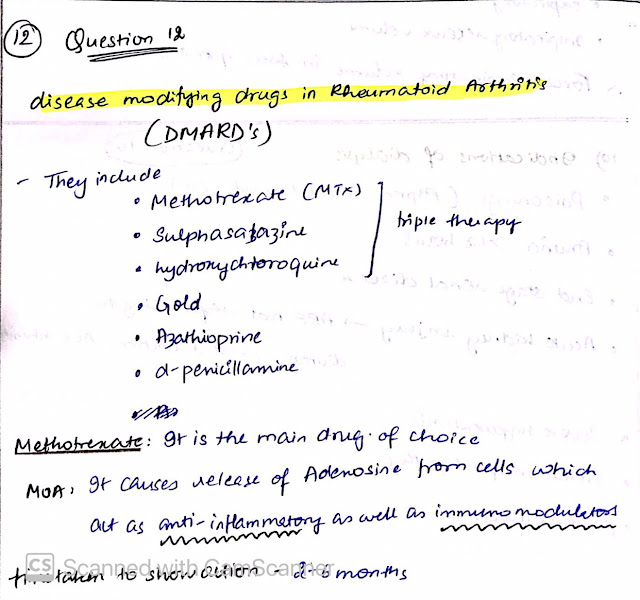 12 Question 12
disease modifying drugs in Rheumatoid Arthritis
(DMARD's)
- They include
• Methotrexate (MTx)
• Sulphasalazine
• hydroxychloroquine
triple therapy
• Gold
• Azathioprine
• d-penicillamine
Methotrexate: It is the main drug of choice
MOA: It causes release of Adenosine from cells which
act as anti-inflammatory as well as immunomodulators
CS Scanned with CamScanner
time taken to show action - 2-6 months